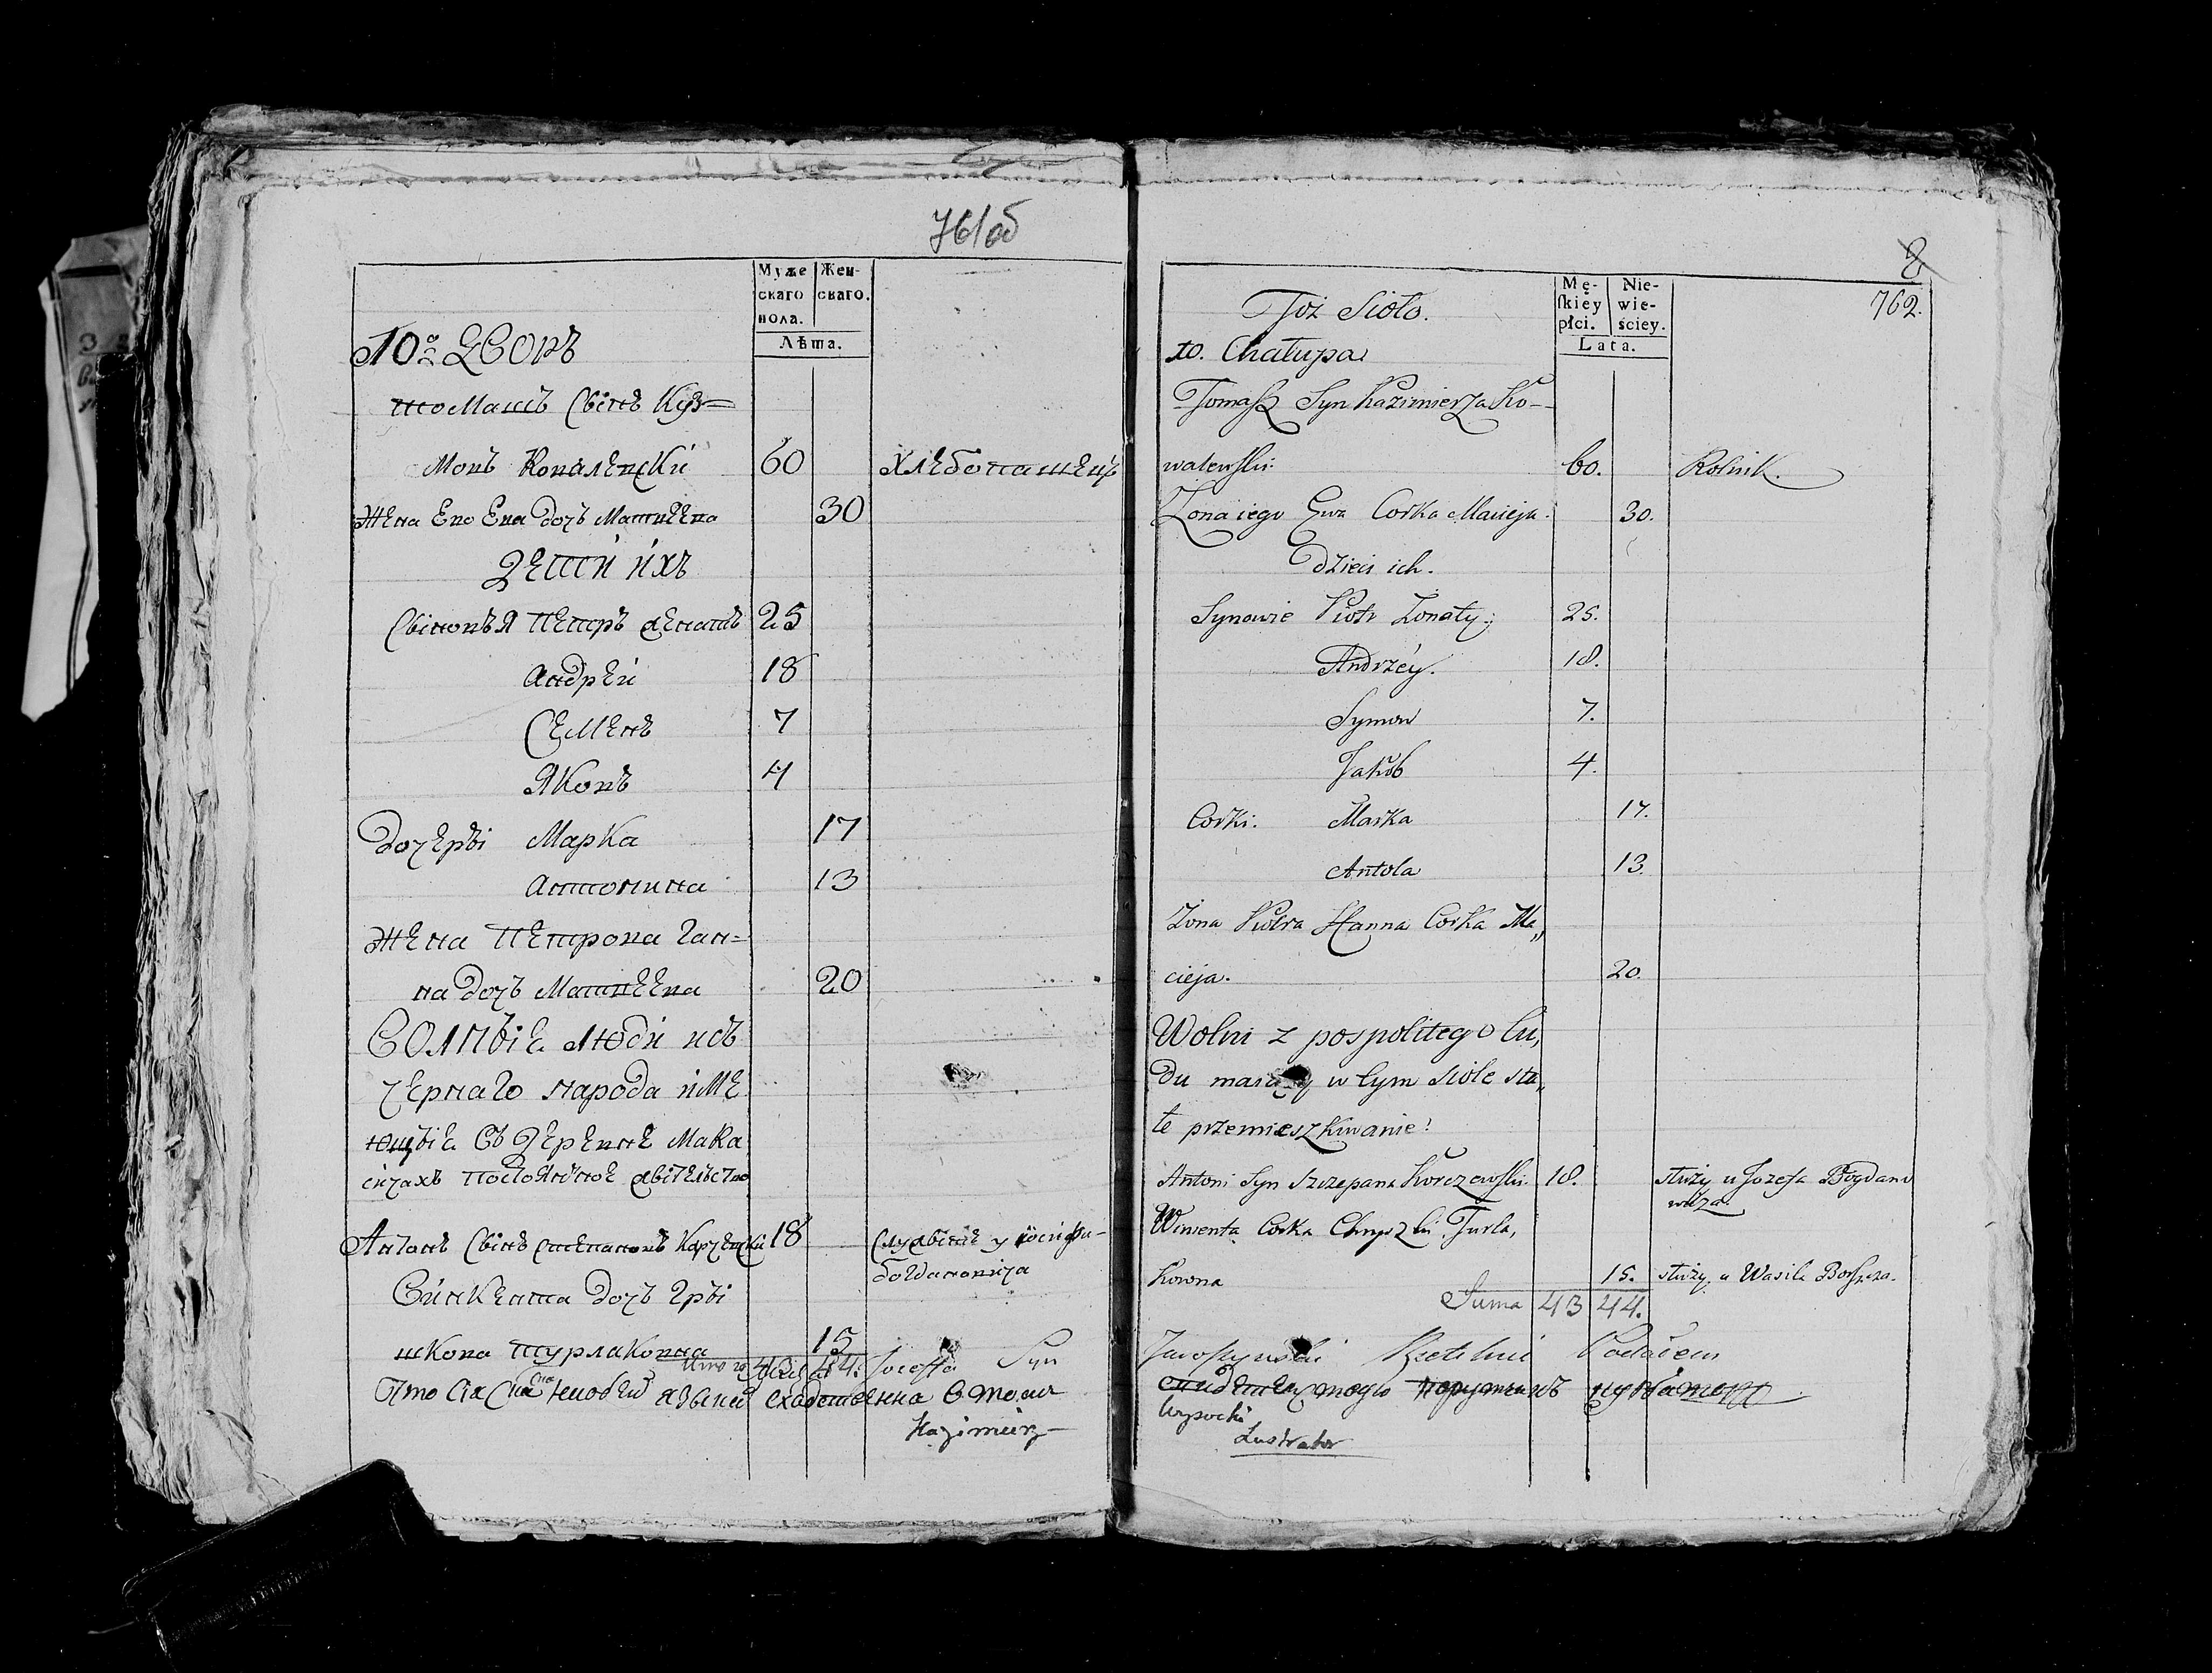 761об
Муже
скаго
пола.
Жен-
скаго.
Лѣта.
10й Дворъ
Томашъ Сынъ Каз=
Мовъ Ковалевски 60 Хлебопашецъ
Жена Ево Ева дочъ Матвеева 30
Дети ихъ
Сыновья Петръ женатъ 25
Андрей 18
Семенъ 7
Яковъ 4
Дочеры Марка 17
Антонина 13
Жена Петрова Ган=
на дочъ Матвеева 20
Волные люди изъ
чернаго народа име
ющые въ Деревне Мака
сичахъ постоянное жытельство
Антонъ Сынъ степановъ Карчевски 18 Служытъ у Иосифа
богдановича
Винкента дочъ Гры
шкова турлаковна 15
43 44. Jozeff Syn
Kazimierz
8
762.
Mę-
ſkiey
płci.
Nie-
wie-
ściey.
Lata.
Toż Sioło.
10. Chałupa
Tomasz Syn Kazimierza Ko-
walewski 60. Rolnik.
Żona iego Ewa Corka Macieja. 30.
Dzieci ich.
Synowie Piotr Żonaty. 25.
Andrzéy. 18.
Symon 7.
Jakób 4.
Corki. Marka 17.
Antola 13.
Żona Piotra Hanna Corka Ma„
cieja. 20.
Wolni z pospolitego lu„
du maiący w tym siole sta„
łe przemieszkiwanie!
Antoni Syn Szczepana Korczewski. 18. służy u Jozefa Bogdano
wicza.
Winsenta Corka Chryszki Turla,
kowna 15. służy u Wasila
Suma 43 44.
Wysocki
Lustrator